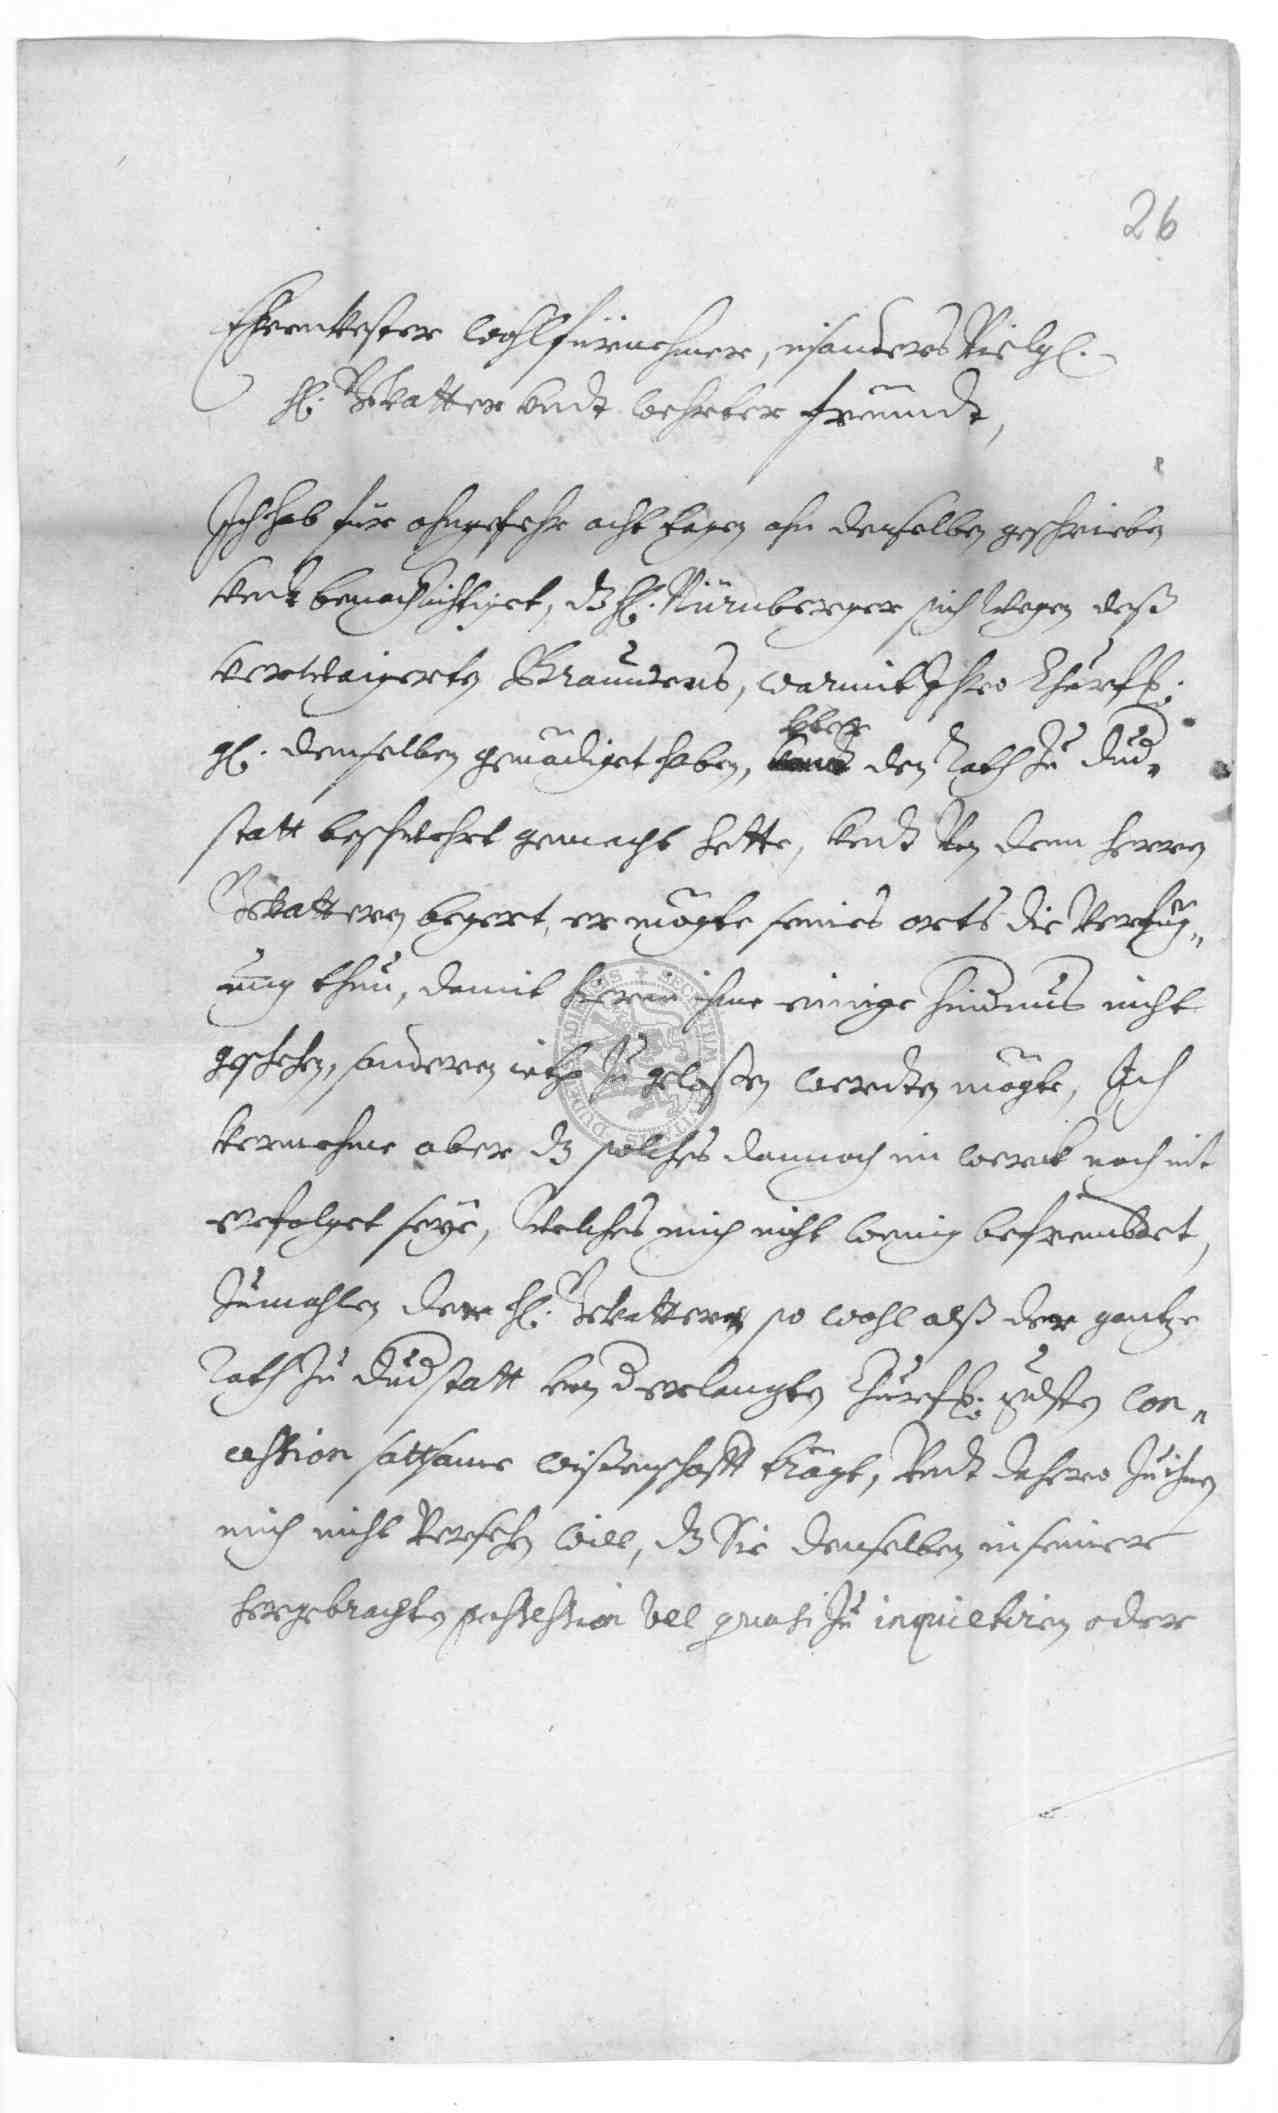 26
Ehrenvester Wohlfürnehmer, insonders Vielgl.
H. Gevatter undt wehrter freundt,
Ich hab für ohngefehr acht tagen ahn denselben geschrieben
undt benachrichtiget, dz H. Nürnberger sich wegen deß
verwaigerten Brauwens, warmit Ihro Churfl:
gl. denselben gnädiget haben, über den Rath zu Dud„
statt beschwehrt gemacht hette, undt von dem herren
Gevatteren begert, er mögte seines orts die Verfüg„
ung thun, damit hierin ihme einige hindnus nicht
geschehen, sonderen zugelaßen werden mögte, Ich
vernehme aber dz solches dannoch im werck noch nit
erfolget seye, Welches mich nicht wenig befrembdet,
Zumahlen der H. Gevatter so wohl alß der gantze
Rath zu Dudstatt von der erlangten Churfl: con„
cession sattsame wißenschafft trägt, Undt dahero zu ihnen
mich nicht Versehen will, dz Sie denselben in seiner
hergebrachten possession vel quasi zu inquietiren oder